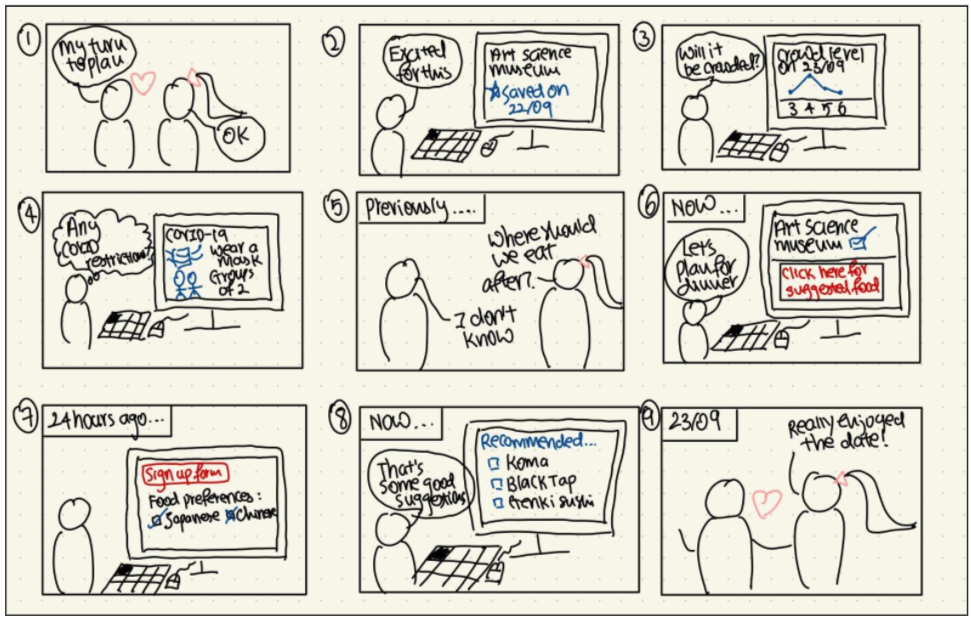 1
My turn
to plan
OK
2
Excited
for this
Art science
museum
☆ saved on
22/09
3
Will it
be crowded?
Crowd level
on 23/09
3 4 5 6
4
Any
COVID
restrictions?
COVID-19
wear a
mask
Groups
of 2
5
Previously.....
Where should
we eat
after?
I don't
know
6
Now...
Let's
plan for
dinner
Art science
museum
Click here for
suggested food
7
24 hours ago...
Sign up form
Food preferences:
Japanese Chinese
8
Now...
That's
some good
suggestions
Recommended...
Koma
Black Tap
Genki Sushi
9
23/09
Really enjoyed
the date!